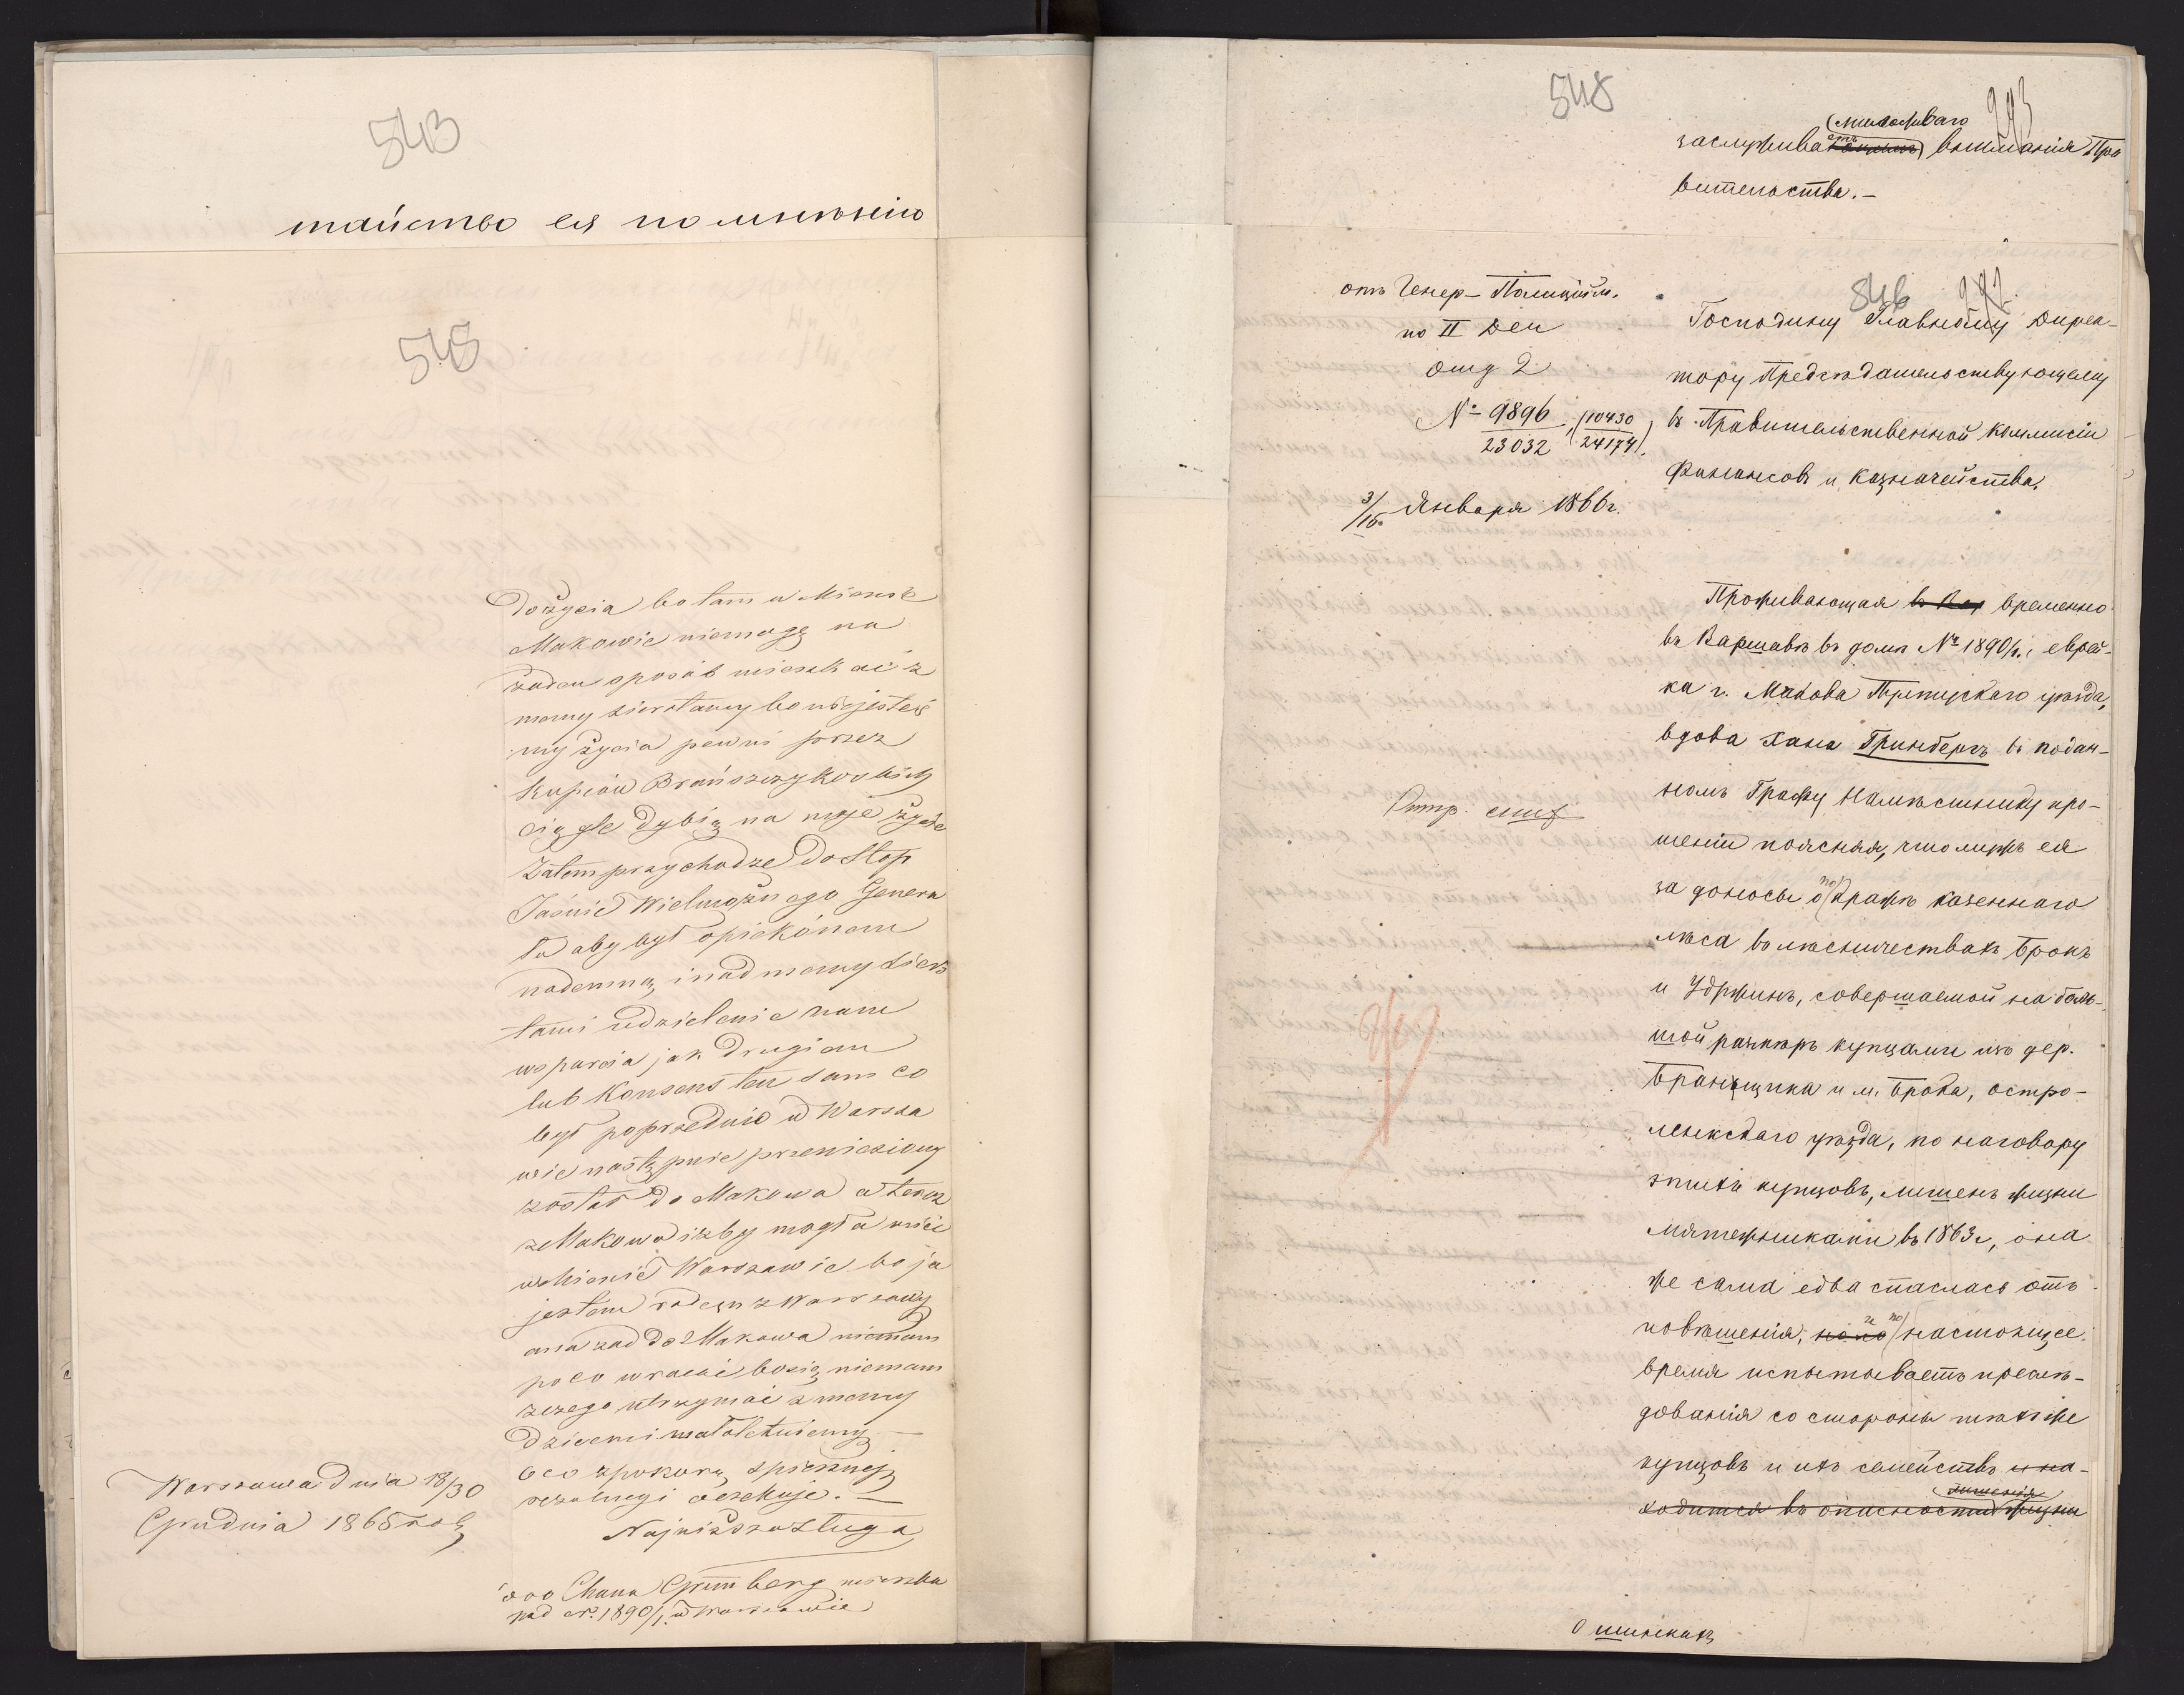 543
тайство ея по мнѣнію
545
do życia bo tam w Miesnie
Makowie niemogę na
żaden sposób mieszkać z
memy sierotamy bo nie jesteś
my życia pewni przez
kupców Brańszczykoskich
ciągle dybią na moje życie
Zatem przychodzę do Stop
Jaśnie Wielmożnego Genera
ła aby był opiekónem
nademną i nad memy siero
tami udzielenie nam
wsparcia jak drugiem
lub konsens ten sam co
był poprzednio w Warsza
wie nastąpnie przeniesiony
został do Makowa a teraz
z Makowa izby mogła mieć
w Mienie Warszawie bo ja
jestem rodem z Warszawy
a nazad do Makowa niemam
poco wracać bo się niemam
z czego utrzymać z memy
dziećmi małoletniemy —
oco z pokorą spiesznej
rezolucyi oczekuje. —
Najniższa Sługa
Warszawa dnia 18/30
Grudnia 1865 rok
ooo Chana Grünberg mieszka
pod No. 1890/1. w Warszawie
548
993
милостиваго
заслуживаетъ вниманія Пра
вительства.—
отъ Генер–Полицiйм.
по II Деп
отд 2.
№ 9896/23032, (10430/24174).
3/15 Января 1866 г.
546
992
Господину Главному Дирек-
тору Предсѣдательствующему
въ Правительственной Коммисіи
Финансовъ и Казначейства.
Проживающая въ Вар временно
въ Варшавѣ въ домѣ № 1890/1., еврей-
ка г. Макова Пултускаго уѣзда,
вдова Хана Гринбергъ въ подан-
номъ Графу Намѣстнику про-
шеніи поясняя, что мужъ ея
за доносы о покражѣ казеннаго
лѣса въ лѣсничествахъ Брокъ
и Удржинъ, совершаемой на боль-
шой размѣръ купцами изъ дер.
Бранщика и м. Брока, остро-
ленкскаго уѣзда, по наговору
этихъ купцовъ, лишенъ жизни
мятежниками въ 1863 г, она
же сама едва спаслась отъ
повѣшенія, но по и по настоящее
время испытываетъ преслѣ-
дованія со стороны тѣхъ же
купцовъ и ихъ семействъ и на-
ходится въ опасности лишенія жизни
О шинкахъ